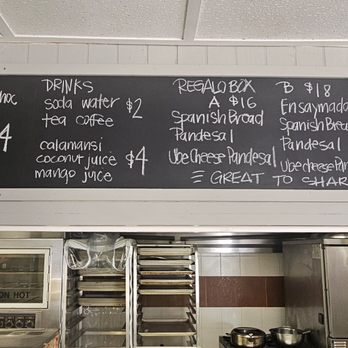 DRINKS
soda water $2
tea coffee
calamansi
coconut juice $4
mango juice
4
REGALO BOX
A $16
Spanish Bread
Pandesal
Ube Cheese Pandesal
B $18
Ensaymada
Spanish Bread
Pandesal
Ube cheese Pan
= GREAT TO SHAR
ON HOT